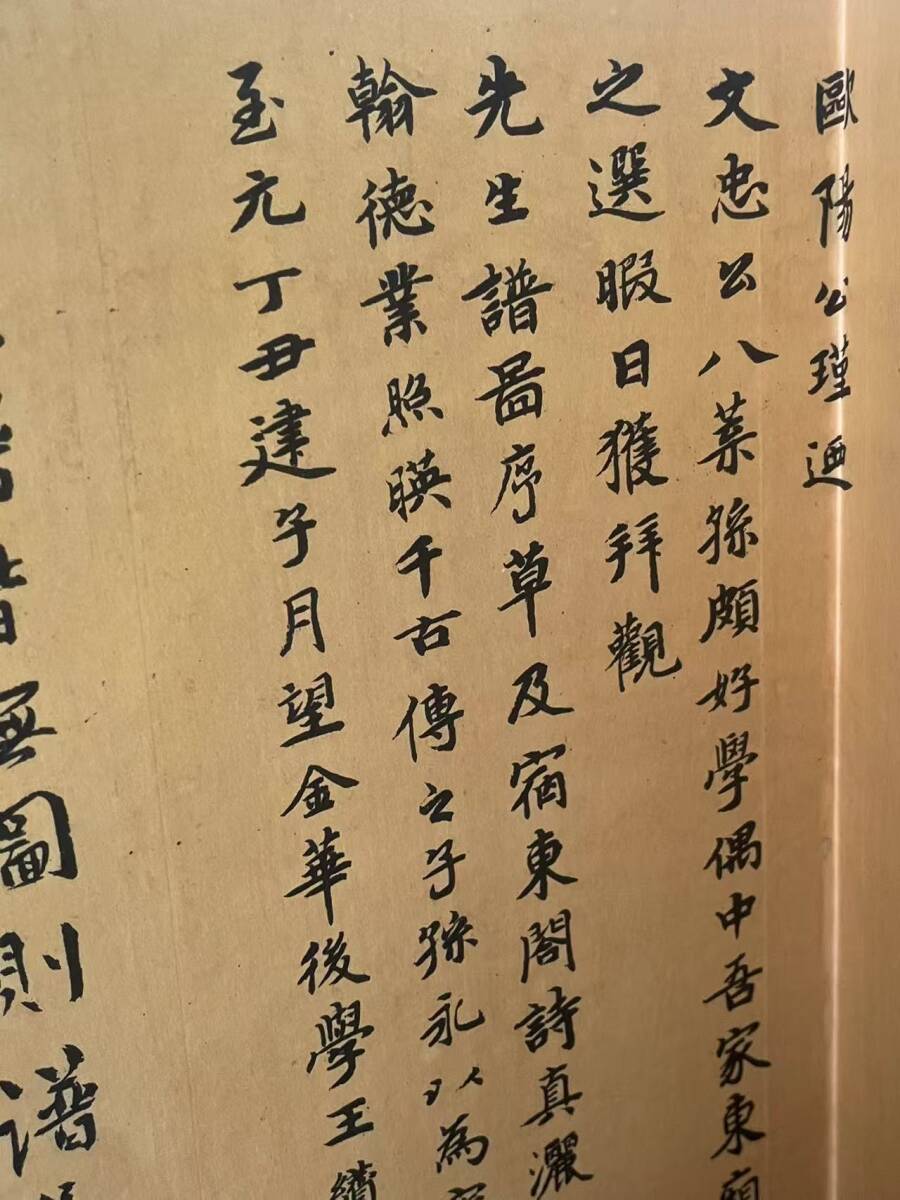 歐陽公瑾迺
文忠公八葉孫頗好學偶中吾家東廂
之選暇日獲拜觀
先生譜圖序草及宿東閣詩真灑
翰德業照暎千古傳之子孫永以為
至元丁丑建子月望金華後學王績
無圖則譜